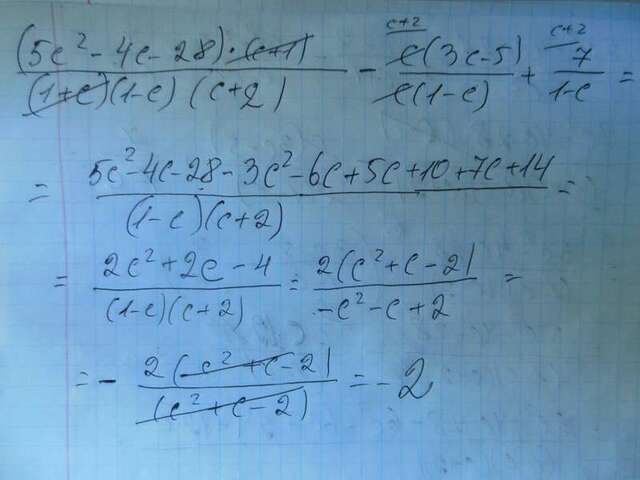 (5c² - 4c - 28)·(c+1) / (1+c)(1-c)(c+2) - c+2 c(3c-5) / c(1-c) + c+2 7 / 1-c =
= 5c² - 4c - 28 - 3c² - 6c + 5c + 10 + 7c + 14 / (1-c)(c+2) =
= 2c² + 2c - 4 / (1-c)(c+2) = 2(c² + c - 2) / -c² - c + 2 =
= - 2(c² + c - 2) / (c² + c - 2) = -2